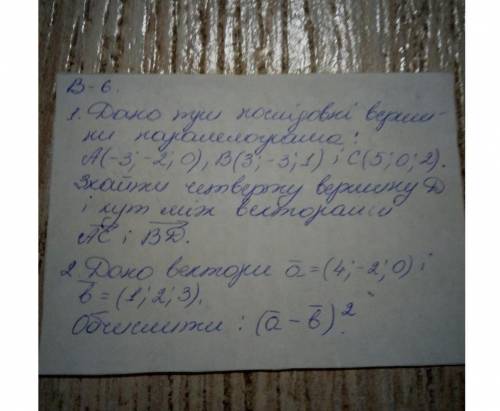 В-6.
1. Дано три послідовні верши-
ни паралелограма:
А(-3;-2;0), В(3;-3;1) і С(5;0;2).
Знайти четверту вершину D
і кут між векторами
A͞C і B͞D.
2. Дано вектори a̅ = (4;-2;0) і
b̅ = (1;2;3).
Обчислити: (a̅ - b̅)².